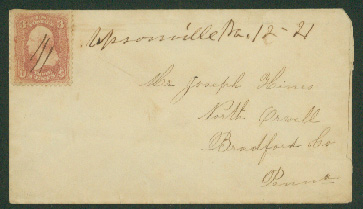 Upsonville Pa. 12-21
Mr Joseph Hines
North Orwell
Bradford Co
Penna